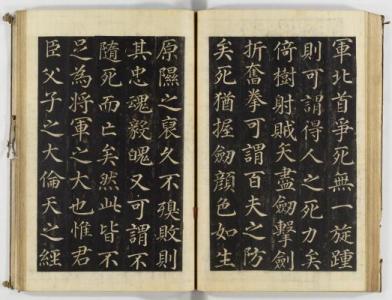 軍北首爭死無一旋踵
則可謂得人之死力矣
倚樹射賊矢盡劒擊劒
折奮拳可謂百夫之防
矣死猶握劒顔色如生
原隰之裒久不殠敗則
其忠魂毅魄又可謂不
隨死而亡矣然此皆不
足為將軍之大也惟君
臣父子之大倫天之經